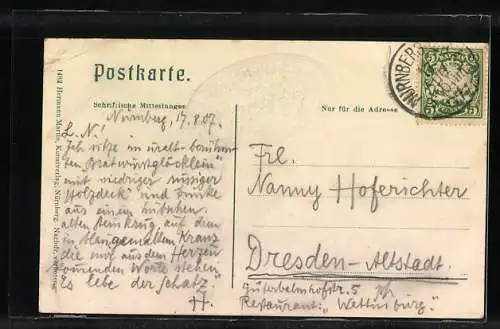 Postkarte.
Schriftliche Mitteilungen
Nur für die Adresse
NÜRNBERG
5 5
1492 Hermann Martin, Kunstverlag, Nürnberg. Nachdr. verboten
Nürnberg, 17.8.07.
L. N!
Ich sitze im uralt-berühm-
ten "Bratwurstglöcklein"
mit niedriger russiger
Holzdeck' und trinke
aus einem hübschen
alten Steinkrug, auf dem
in blaugemaltem Kranz
die mir aus dem Herzen
kommenden Worte stehen
Es lebe der Schatz.
H.
Frl.
Nanny Hoferichter
Dresden-Altstadt.
Güterbahnhofstr. 5
Restaurant: "Wettinburg"